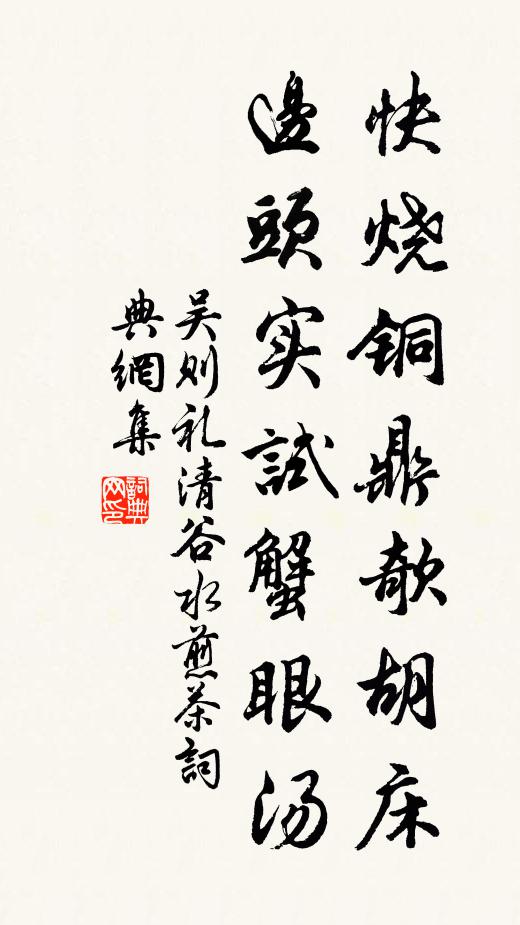 快烧铜鼎欹胡床
邊頭实試蟹眼汤
吴则礼清谷水煎茶詞
典網集
詞典网印